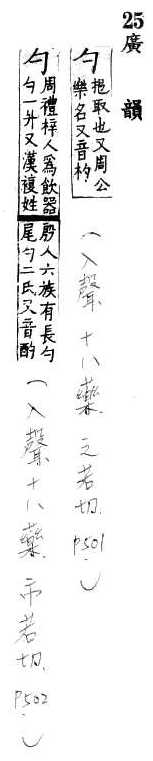 25廣韻
勺 挹取也又周公
樂名又音杓
(入聲 十八藥 之若切. P501.)
勺 周禮梓人爲飮器
勺一升又漢複姓
殷人六族有長勺
尾勺二氏又音酌
(入聲 十八藥 市若切. P502.)